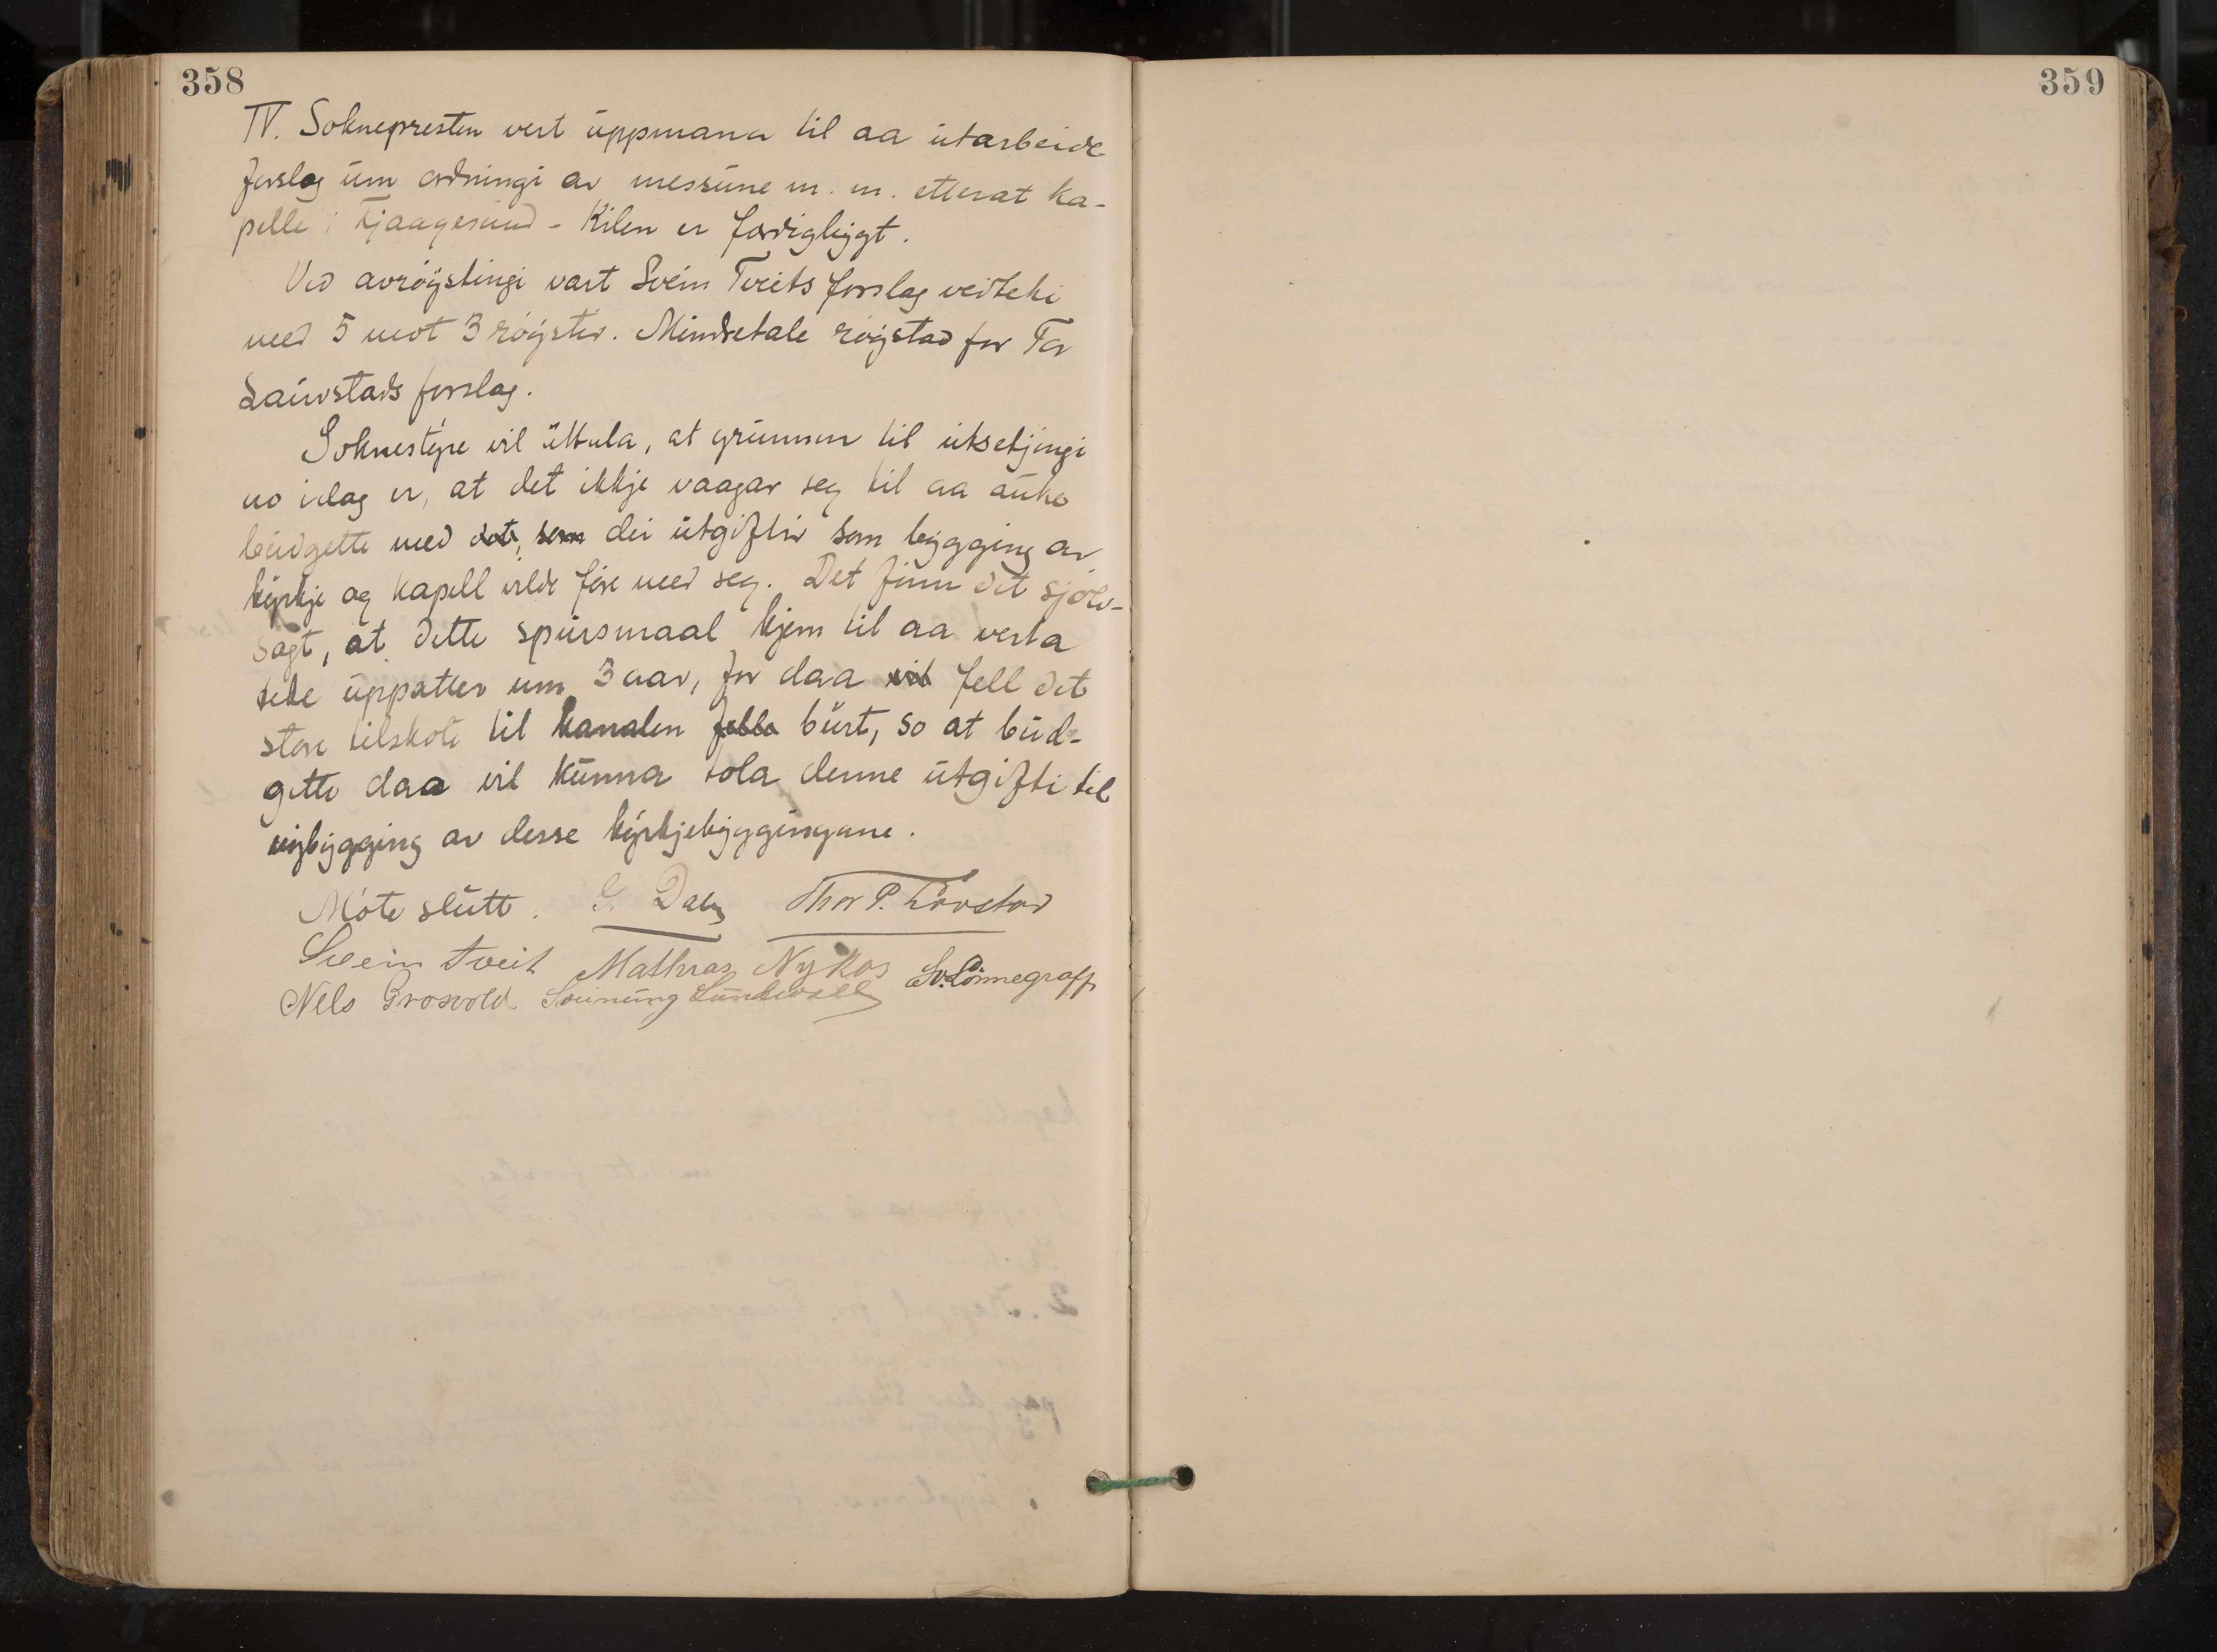 358
IV. Soknepresten vert uppmana til aa utarbeide
forslag um ordningi av messune m. m. etterat ka-
pelle i Fjaagesund - Kilen er fordigbygt.
Ved avröystingi vart Svein Tveits forslag vedteki
med 5 mot 3 röyster. Mindretale röystad for Tor
Lauvstads forslag.
Soknestyre vil uttula, at grunnen til utsetjingi
no idag er, at det ikkje vaagar seg til aa auke
budgette med det, som dei utgiftir som bygging av
kyrkje og kapell vilde före med seg. Det finn det sjölv-
sagt, at dette spursmaal kjem til aa verta
teke uppatter um 3 aar, for daa vil fell det
store tilskote til kanalen falla burt, so at bud-
gette daa vil kunna tola denne utgifti til
nybygging av desse kyrkjebyggingane.
Möte slutt. G. Dale Thor P. Lövstad
Svein Tveit Mathias Nykos Sv. Lönnegraff
Nels Grosvold Sveinung Lundevall
359